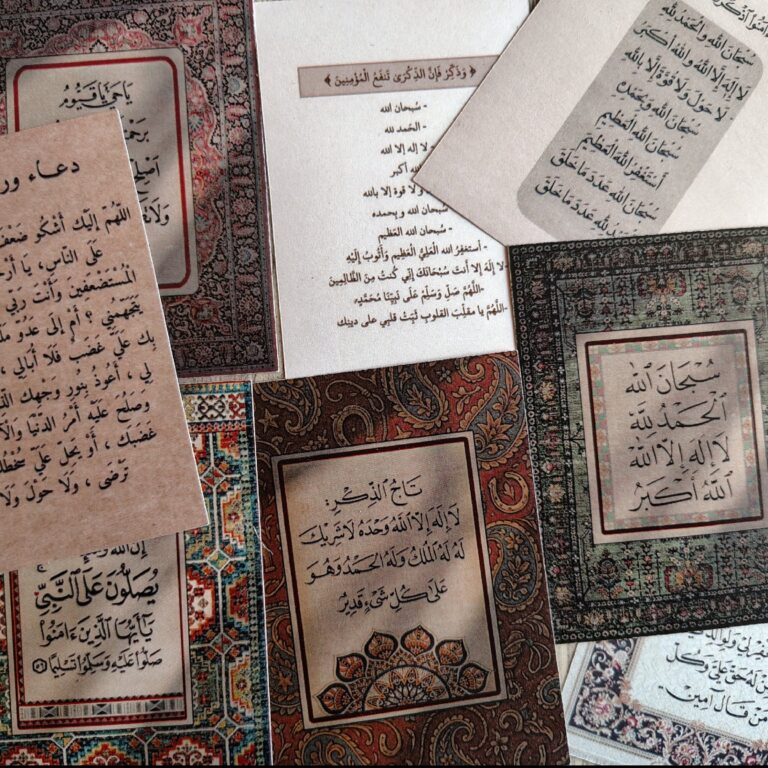 يا حي يا قيوم
دعاء
اللهم إليك أشكو
على الناس، يا
المستضعفين وأنت ربي
يتجهمني ؟ أم إلى عدو
بك علي غضب فلا أبالي ،
لي ، أعوذ بنور وجهك
وصلح عليه أمر الدنيا
غضبك ، أو يحل علي
ترضى ، ولا حول ولا
﴿ وَذَكِّرْ فَإِنَّ الذِّكْرَىٰ تَنفَعُ الْمُؤْمِنِينَ ﴾
- سُبحان الله
- الحَمد لله
- لا إله إلا الله
أكبر
ولا قوة إلا بالله
سبحان الله و بحمده
- سُبحان الله العَظيم
- أستغفِرُ الله العَلِيَّ العَظيم وَأَتُوبُ إِلَيْهِ
- لا إِلَهَ إِلا أَنتَ سُبْحَانَكَ إِنِّي كُنتُ مِنَ الظَّالِمِينَ
- اللَّهُمَّ صَلِّ وَسَلِّمْ عَلَى نَبِيِّنَا مُحَمَّدٍ
- اللَّهُمَّ يا مقلِّبَ القلوبِ ثَبِّتْ قلبي على دينِك
سبحان الله والحمد لله
لا إله إلا الله والله أكبر
لا حول ولا قوة إلا بالله
سبحان الله وبحمده
سبحان الله العظيم
أستغفر الله العظيم
سبحان الله عدد ما خلق
سبحان الله عدد ما خلق
سُبْحَانَ ٱللَّه
ٱلْحَمْدُ لِلَّه
لَا إِلَهَ إِلَّا ٱللَّه
ٱللَّهُ أَكْبَرُ
تَاجُ ٱلذِّكْرِ:
لَا إِلَهَ إِلَّا ٱللَّهُ وَحْدَهُ لَا شَرِيكَ
لَهُ لَهُ ٱلْمُلْكُ وَلَهُ ٱلْحَمْدُ وَهُوَ
عَلَىٰ كُلِّ شَىْءٍ قَدِيرٌ
يُصَلُّونَ عَلَى ٱلنَّبِيِّ
يَا أَيُّهَا ٱلَّذِينَ ءَامَنُوا۟
صَلُّوا۟ عَلَيْهِ وَسَلِّمُوا۟ تَسْلِيمًا ٥٦
له حق علي وكل
من قال آمين-